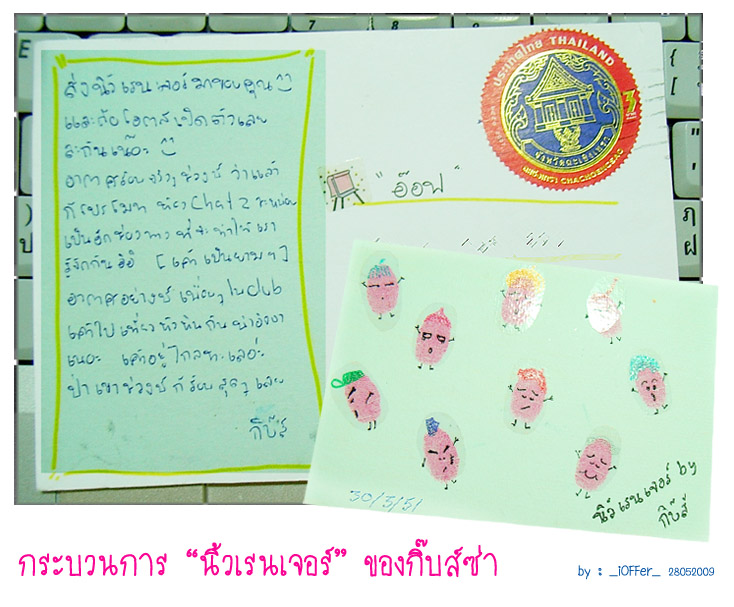 ส่งนิ้วเรนเจอร์มาขอบคุณ
และถือโอกาสเปิดตัวเลย
ละกันเนอะ
อากาศร้อนจริงๆช่วงนี้ ว่าแล้ว
ก็ห้อง Chat 2
เป็นอีกช่องทาง ที่จะทำให้เรา
รู้จักกันดี [เค้าเป็นยาม ๆ]
อากาศอย่างนี้ เพื่อนๆ ใน club
เค้าไปเที่ยวหัวหินกัน น่าอิจฉา
เนอะ เค้าอยู่ไกลทะเลอ่ะ
ป่า เขา ช่วงนี้ ก็ร้อนสุดๆ เลย
กิ๊บส์
"อ๊อฟ"
ประเทศไทย THAILAND
3
จังหวัดฉะเชิงเทรา
ฉะเชิงเทรา CHACHOENGSAO
30/3/51
นิ้วเรนเจอร์ by
กิ๊บส์
กระบวนการ “นิ้วเรนเจอร์” ของกิ๊บส์ซ่า
by : _iOFFer_ 28052009